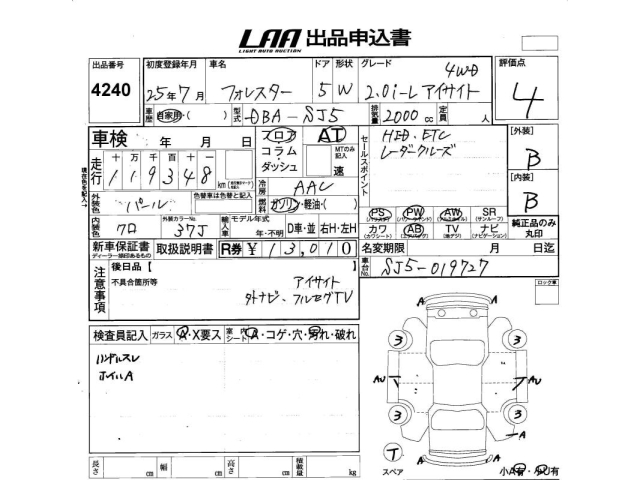 LAA 出品申込書
LIGHT AUTO AUCTION
出品番号
4240
初度登録年月
25年7月
車名
フォレスター
ドア
5
形状
W
グレード
4WD
2.0i-L アイサイト
評価点
4
車歴
自家用・( )
型式
DBA-SJ5
排気量
2000 cc
定員
人
車検 年 月 日
フロア AT
コラム・ダッシュ
MTのみ記入
速
セールスポイント
HID、ETC
レーダークルーズ
[外装]
B
[内装]
B
走行
十万千百十一
119348 km
冷房
AAC
燃料
ガソリン・軽油・( )
外装色
パール
色替車は色替と記入
内装色
クロ
外装カラーNo.
37J
輸入車
モデル年式
年・不明
D車・並
右H・左H
PS PW AW SR
(サンルーフ)
カワ AB TV ナビ
(ナビゲーション)
純正品のみ丸印
新車保証書
取扱説明書
R券 ¥13,010
名変期限 月 日迄
車台No.
SJ5-019727
注意事項
後日品【
不具合箇所等
アイサイト
外ナビ・フルセグTV
ロック車
検査員記入
ガラス A・X要ス
内シート A・コゲ・穴・汚れ・破れ
ハンドルスレ
ホイルA
A
A
3
3
AU
AU
3
3
A
T
A
A
スペア
小A有・小U有
長さ cm 幅 cm 高さ cm 積載量 kg